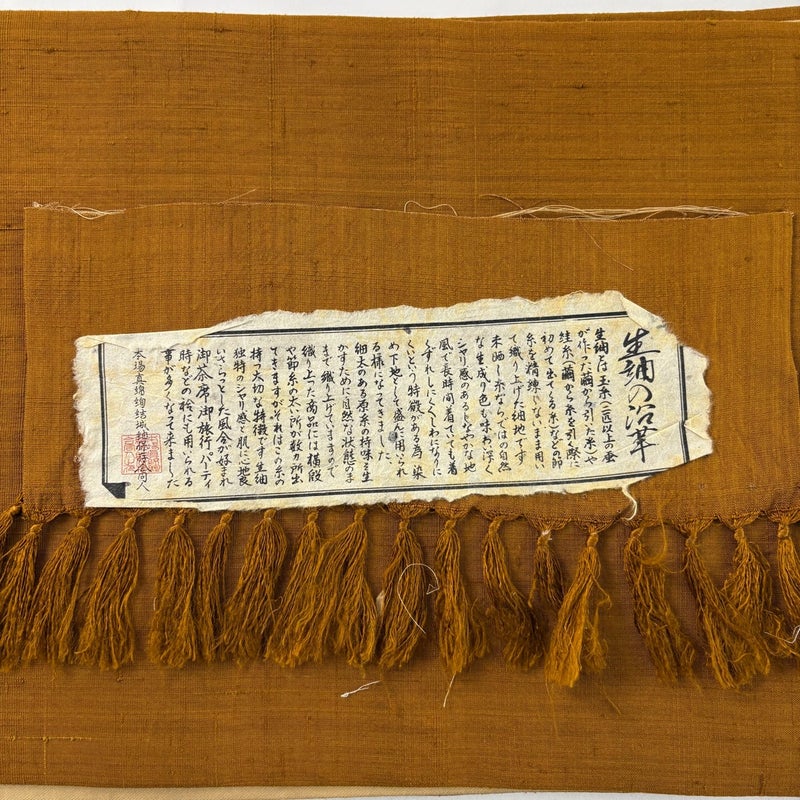 生紬の沿革
生紬は玉糸(二匹以上の蚕
が作った繭から引いた糸)や
絓糸(繭から糸を引く際に
初めて出てくる糸)などの節
糸を精練しないまま用い
て織り上げた紬地です
未晒し糸ならではの自然
な生成り色も味わい深く
シャリ感のあるしなやかな地
風で長時間着ていても着
くずれしにくくしわになりに
くいという特徴がある為染
め下地として盛んに用いられ
る様になってきました
細太のある原糸の持味を生
かすために自然な状態のま
まで織り上げていますので
織り上った商品には横段
や節糸の太い所が数ヵ所出
てきますがそれはこの糸の
持つ大切な特徴です生紬
独特のシャリ感と肌に心地良
いさらっとした風合が好まれ
御茶席御旅行パーティ
時などの装にも用いられる
事が多くなって来ました
本場真綿結城紬保存会同人